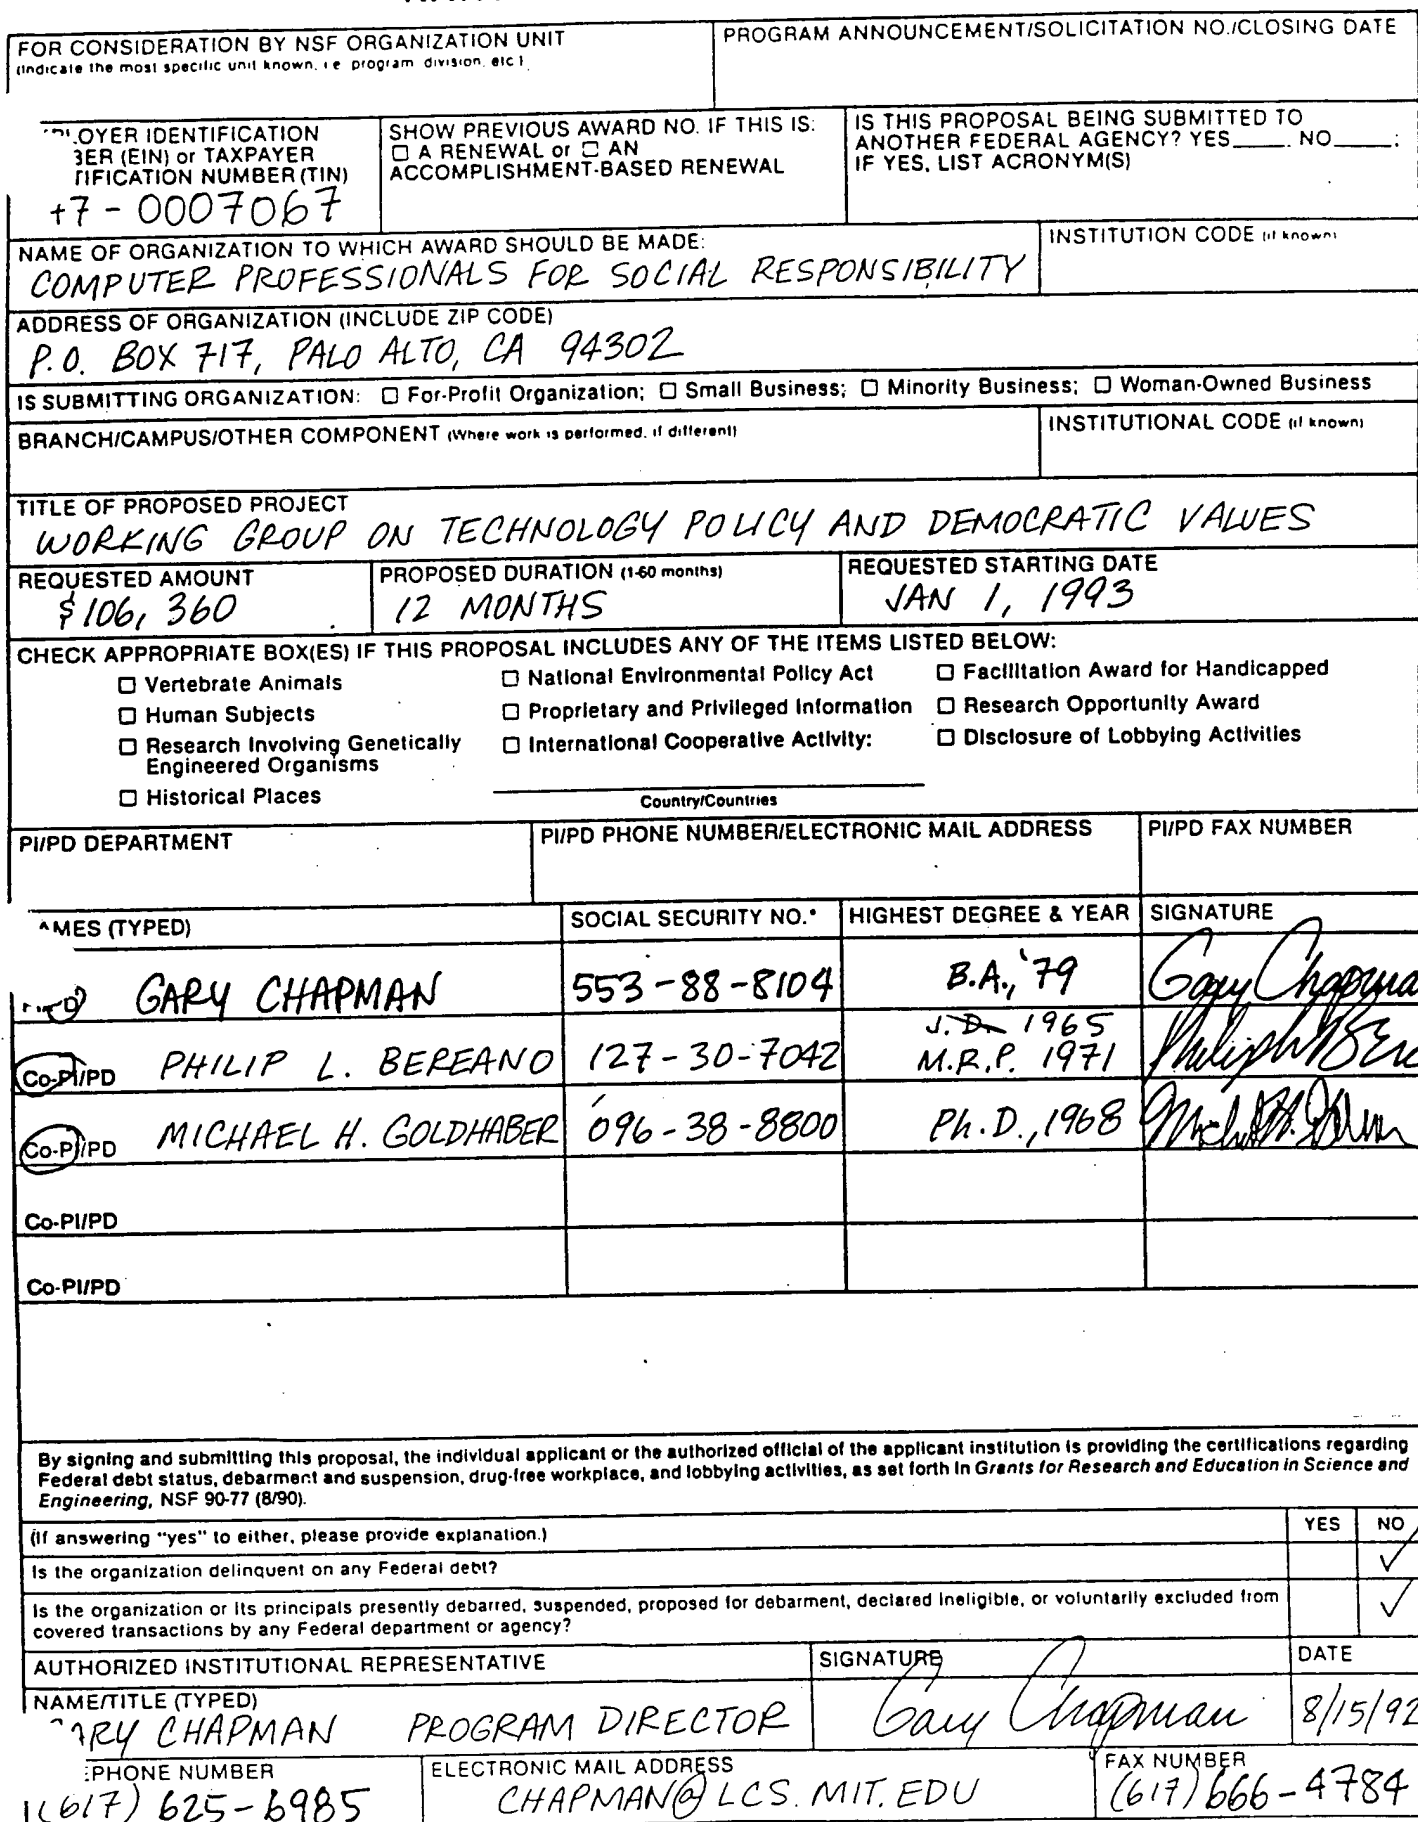 FOR CONSIDERATION BY NSF ORGANIZATION UNIT
(Indicate the most specific unit known, i.e. program, division, etc.)
PROGRAM ANNOUNCEMENT/SOLICITATION NO./CLOSING DATE
OYER IDENTIFICATION
BER (EIN) or TAXPAYER
TIFICATION NUMBER (TIN)
7-0007067
SHOW PREVIOUS AWARD NO. IF THIS IS:
☐ A RENEWAL or ☐ AN
ACCOMPLISHMENT-BASED RENEWAL
IS THIS PROPOSAL BEING SUBMITTED TO
ANOTHER FEDERAL AGENCY? YES____. NO____;
IF YES, LIST ACRONYM(S)
NAME OF ORGANIZATION TO WHICH AWARD SHOULD BE MADE:
COMPUTER PROFESSIONALS FOR SOCIAL RESPONSIBILITY
INSTITUTION CODE (if known)
ADDRESS OF ORGANIZATION (INCLUDE ZIP CODE)
P.O. BOX 717, PALO ALTO, CA 94302
IS SUBMITTING ORGANIZATION: ☐ For-Profit Organization; ☐ Small Business; ☐ Minority Business; ☐ Woman-Owned Business
BRANCH/CAMPUS/OTHER COMPONENT (Where work is performed, if different)
INSTITUTIONAL CODE (if known)
TITLE OF PROPOSED PROJECT
WORKING GROUP ON TECHNOLOGY POLICY AND DEMOCRATIC VALUES
REQUESTED AMOUNT
$106,360
PROPOSED DURATION (1-60 months)
12 MONTHS
REQUESTED STARTING DATE
JAN 1, 1993
CHECK APPROPRIATE BOX(ES) IF THIS PROPOSAL INCLUDES ANY OF THE ITEMS LISTED BELOW:
☐ Vertebrate Animals
☐ Human Subjects
☐ Research Involving Genetically
Engineered Organisms
☐ Historical Places
☐ National Environmental Policy Act
☐ Proprietary and Privileged Information
☐ International Cooperative Activity:
Country/Countries
☐ Facilitation Award for Handicapped
☐ Research Opportunity Award
☐ Disclosure of Lobbying Activities
PI/PD DEPARTMENT
PI/PD PHONE NUMBER/ELECTRONIC MAIL ADDRESS
PI/PD FAX NUMBER
AMES (TYPED)
SOCIAL SECURITY NO.*
HIGHEST DEGREE & YEAR
SIGNATURE
GARY CHAPMAN 553-88-8104 B.A., '79 Gary Chapma
J.D. 1965
Co-PI/PD PHILIP L. BEREANO 127-30-7042 M.R.P. 1971
Co-PI/PD MICHAEL H. GOLDHABER 096-38-8800 Ph.D., 1968
Co-PI/PD
Co-PI/PD
By signing and submitting this proposal, the individual applicant or the authorized official of the applicant institution is providing the certifications regarding
Federal debt status, debarment and suspension, drug-free workplace, and lobbying activities, as set forth in Grants for Research and Education in Science and
Engineering, NSF 90-77 (8/90).
(If answering "yes" to either, please provide explanation.)
YES
NO
Is the organization delinquent on any Federal debt?
✓
Is the organization or its principals presently debarred, suspended, proposed for debarment, declared ineligible, or voluntarily excluded from
covered transactions by any Federal department or agency?
✓
AUTHORIZED INSTITUTIONAL REPRESENTATIVE
SIGNATURE
DATE
NAME/TITLE (TYPED)
ARY CHAPMAN PROGRAM DIRECTOR
Gary Chapman
8/15/92
EPHONE NUMBER
(617) 625-6985
ELECTRONIC MAIL ADDRESS
CHAPMAN@LCS.MIT.EDU
FAX NUMBER
(617) 666-4784